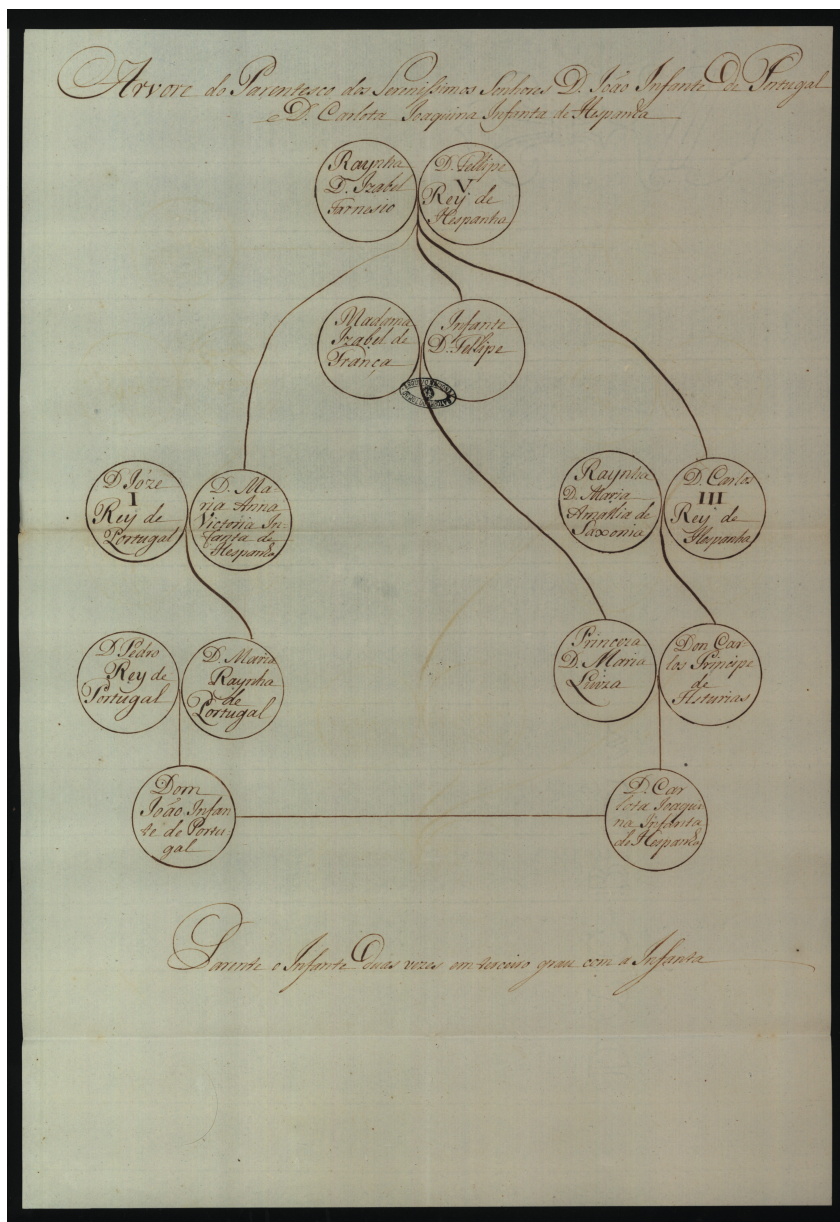 Arvore do Parentesco dos Serenissimos Senhores D. João Infante de Portugal
e D. Carlota Joaquina Infanta de Hespanha
Raynha
D. Izabel
Farnesio
D. Fellipe
V
Rey de
Hespanha
Madama
Izabel de
França
Infante
D. Fellipe
D. Joze
I
Rey de
Portugal
D. Ma
ria Anna
Victoria In-
fanta de
Hespanha
Raynha
D. Maria
Amallia de
Saxonia
D. Carlos
III
Rey de
Hespanha
D. Pedro
Rey de
Portugal
D. Maria
Raynha
de
Portugal
Princeza
D. Maria
Luiza
Don Car-
los Principe
de
Asturias
Dom
João Infan-
te de Portu
gal
D. Car
lota Joaqui
na Infanta
de Hespanha
Parente o Infante duas vezes em terceiro grau com a Infanta